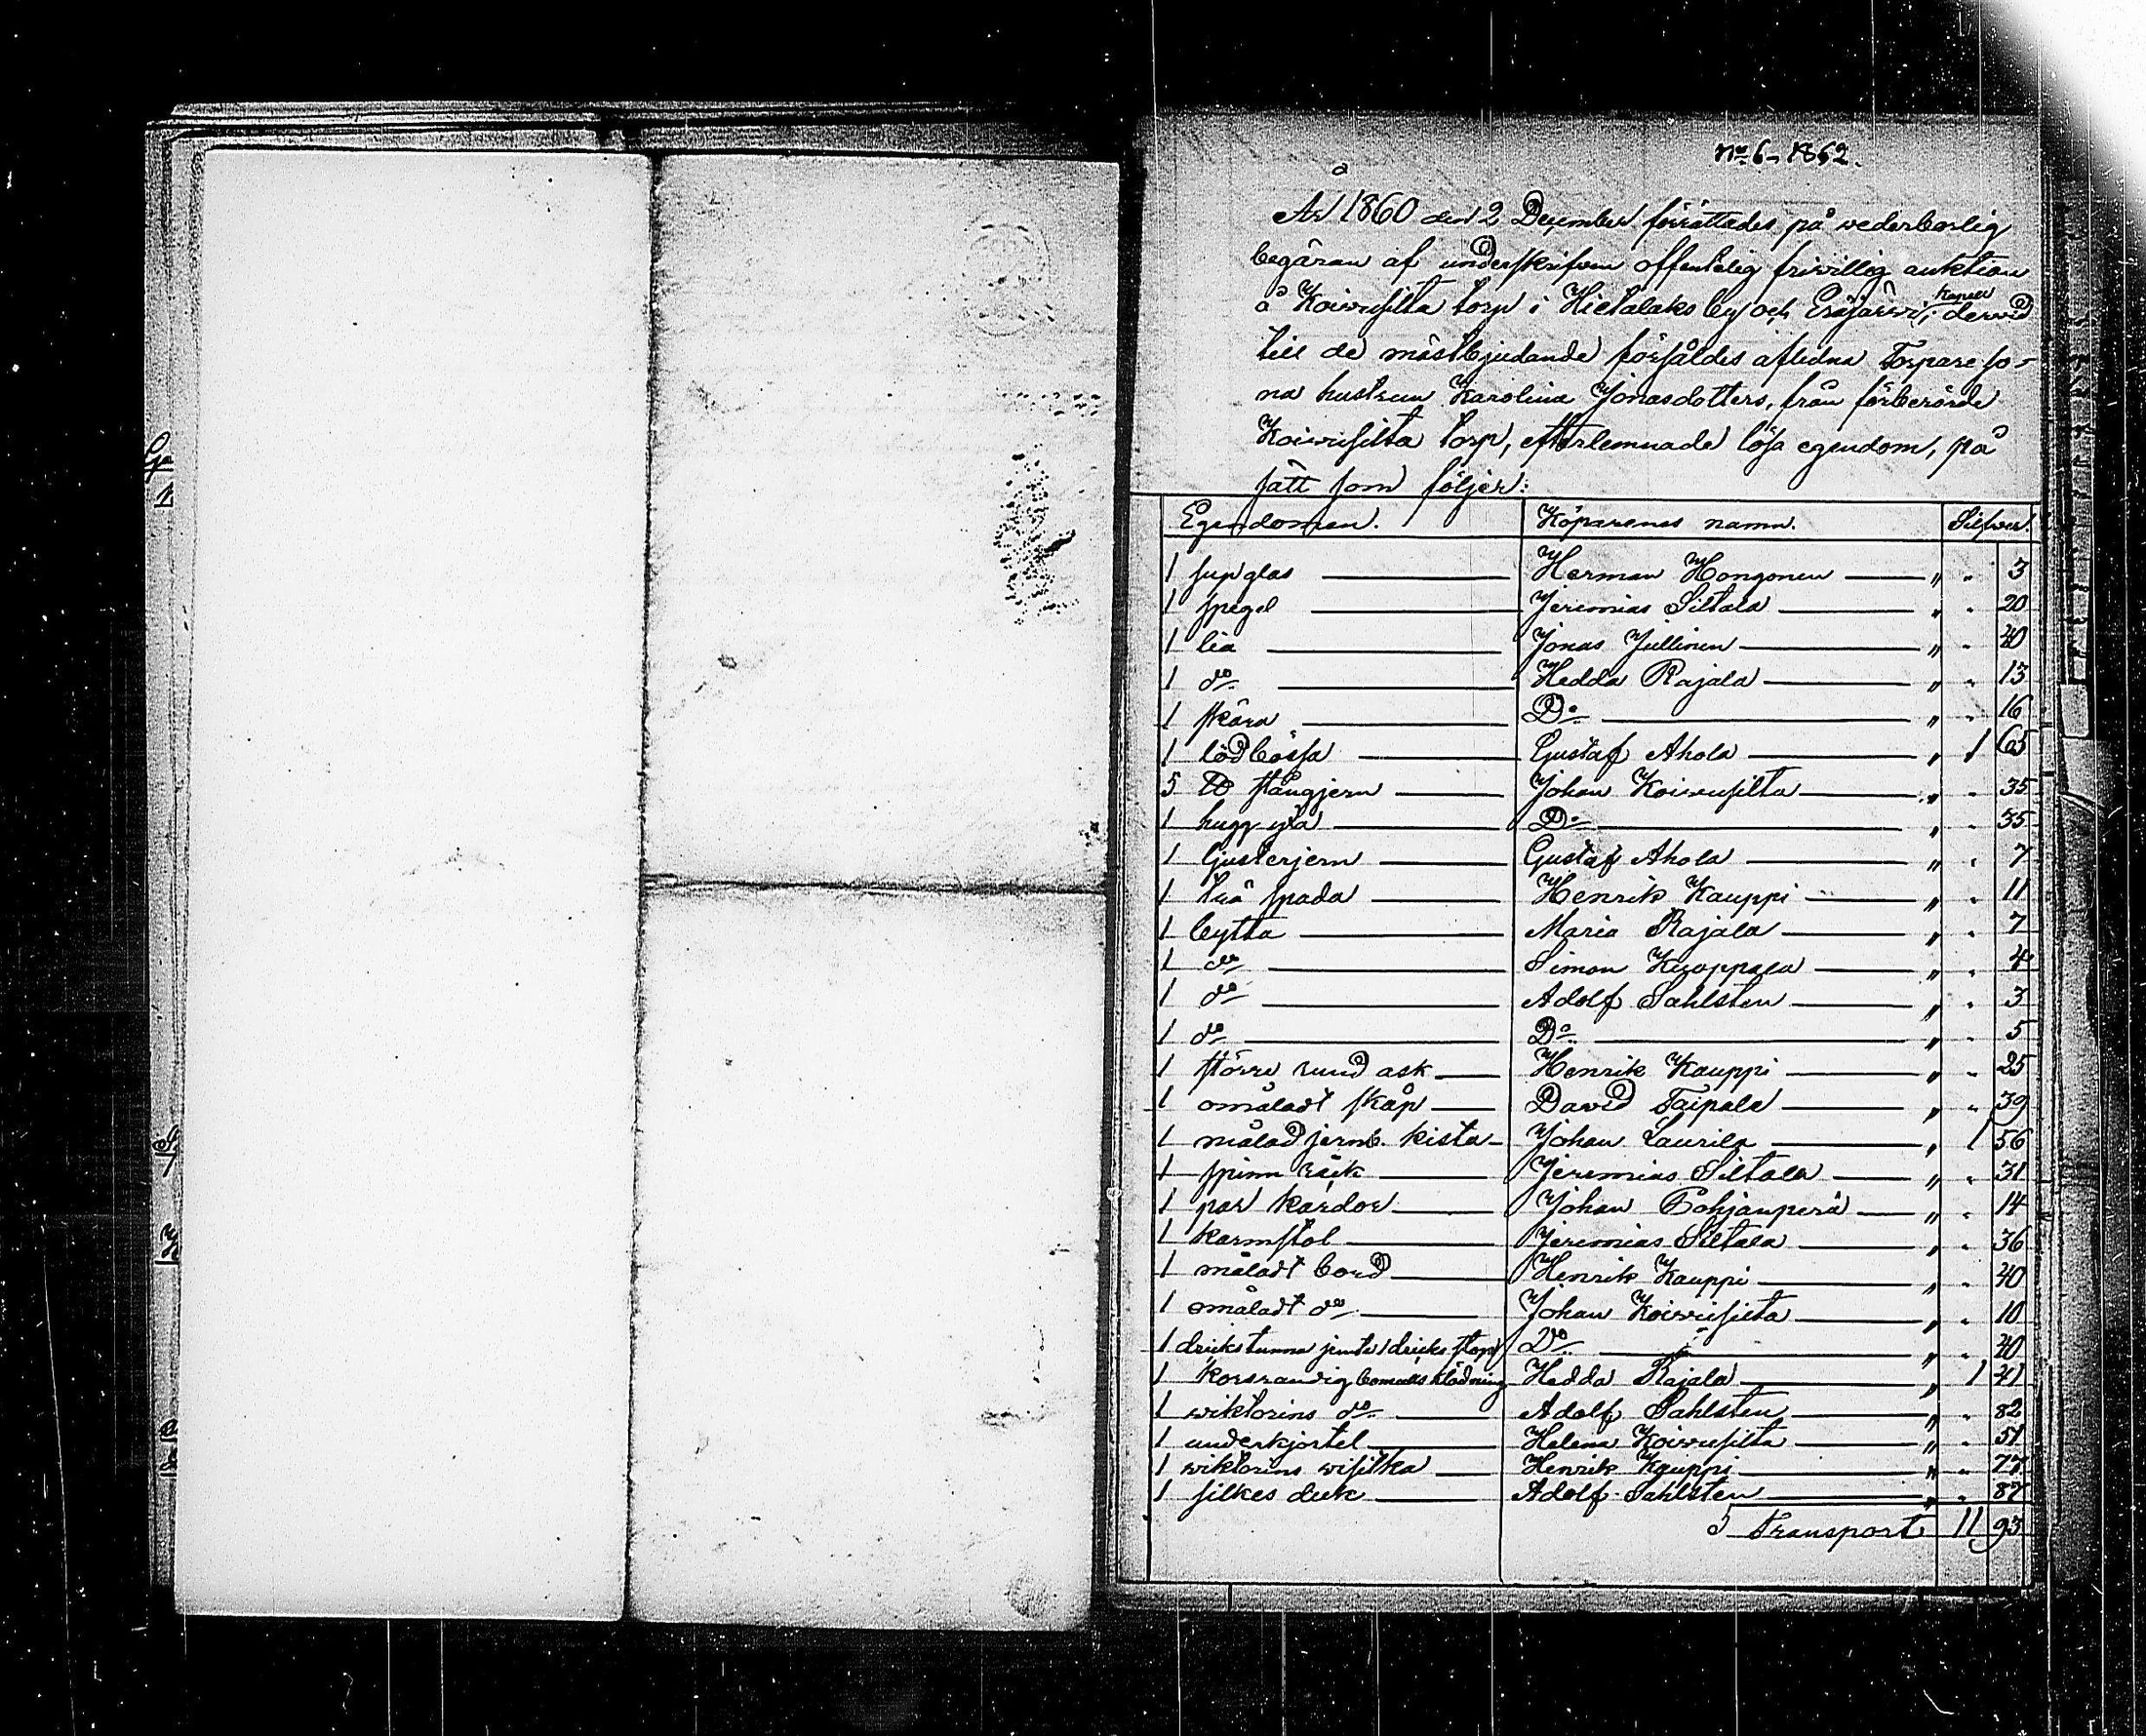 No 6, 1862.
År 1860 den 2 December förrättades på wederbörlig
begäran af underskrifven offentelig friwillig auktion
å Koiwusilta torp i Hietalaks by och Eräjärwi kapell; derwid
till de mästbjudande försåldes aflidna Torpare so-
na hustrun Karolina Jonasdotters, från förberörde
Koiwusilta torp, efterlemnade lösa egendom, på
sätt som följer:
Egendomen. Köparenes namn. Silfwer.
1 supglas Herman Hongonen „ - 3
1 spegel Jeremias Siltala „ - 20
1 lia Jonas Jullinen „ - 40
1 do Hedda Rajala „ - 13
1 skära Do „ - 16
1 lödbössa Gustaf Ahola „ 1 65
5 ℔ stångjern Johan Koiwusilta „ - 35
1 hugg yxa Do „ - 35
1 ljusterjern Gustaf Ahola „ - 7
1 trä spada Henrik Kauppi „ - 11
1 bytta Maria Rajala „ - 7
1 do Simon Knoppala „ - 4
1 do Adolf Sahlsten „ - 3
1 do Do „ - 5
1 större rund ask Henrik Kauppi „ - 25
1 omåladt skåp David Taipale „ - 39
1 målad jernb. kista Johan Laurila „ 1 56
1 spinn räck Jeremias Siltala „ - 31
1 par kardor Johan Pohjanperä „ - 14
1 karmstol Jeremias Siltala „ - 36
1 måladt bord Henrik Kauppi „ - 40
1 omåladt do Johan Koiwusilta „ - 10
1 drickstunna jemte 1 dricks stop Do „ - 40
1 korsrandig bomulls klädning Hedda Rajala „ 1 41
1 wiktorins do Adolf Sahlsten „ - 82
1 underkjortel Helena Koiwusilta „ - 51
1 wiktorins wisitka Henrik Kauppi „ - 77
1 silkes duk Adolf Sahlsten „ - 87
Transport 11 93